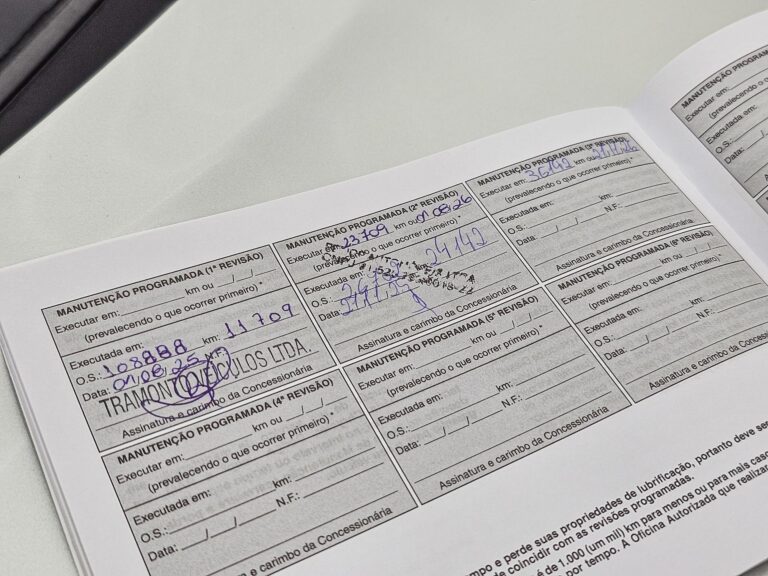 MANUTENÇÃO PROGRAMADA (1ª REVISÃO)
Executar em: km ou / /
(prevalecendo o que ocorrer primeiro)*
Executada em: km: 11709
O.S.: 108888 N.F.:
Data: 01/08/25
TRAMONTO VEÍCULOS LTDA.
Assinatura e carimbo da Concessionária
MANUTENÇÃO PROGRAMADA (2ª REVISÃO)
Executar em: 23709 km ou 01/08/26
(prevalecendo o que ocorrer primeiro)*
Executada em: 24142
O.S.:
Data:
Assinatura e carimbo da Concessionária
MANUTENÇÃO PROGRAMADA (3ª REVISÃO)
Executar em: 36142 km ou
(prevalecendo o que ocorrer primeiro)*
Executada em: km:
O.S.: N.F.:
Data: / /
Assinatura e carimbo da Concessionária
MANUTENÇÃO PROGRAMADA (4ª REVISÃO)
Executar em: km ou / /
(prevalecendo o que ocorrer primeiro)*
Executada em: km:
O.S.: N.F.:
Data: / /
Assinatura e carimbo da Concessionária
MANUTENÇÃO PROGRAMADA (5ª REVISÃO)
Executar em: km ou / /
(prevalecendo o que ocorrer primeiro)*
Executada em: km:
O.S.: N.F.:
Data: / /
Assinatura e carimbo da Concessionária
MANUTENÇÃO PROGRAMADA (6ª REVISÃO)
Executar em: km ou / /
(prevalecendo o que ocorrer primeiro)*
Executada em: km:
O.S.: N.F.:
Data: / /
Assinatura e carimbo da Concessionária
mpo e perde suas propriedades de lubrificação, portanto deve se
de coincidir com as revisões programadas.
é de 1.000 (um mil) km para menos ou para mais cas
por tempo. A Oficina Autorizada que realizar
MANUTENÇÃO PROGRAMA
Executar em:
(prevalecendo o que
Executada em:
O.S.:
Data: